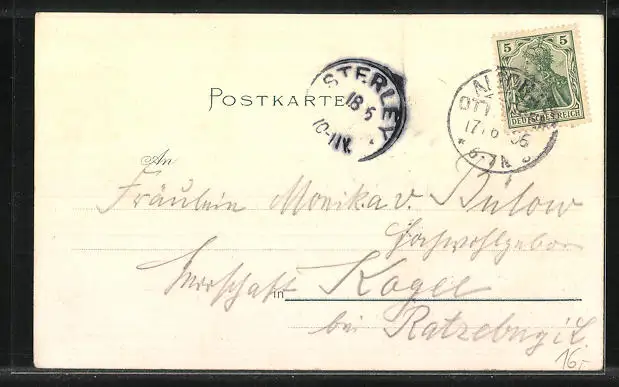 POSTKARTE
STERLEY
18 5
10-11V.
5 5
DEUTSCHES REICH
ALTONA
OTT
17 6 06
6-7N
An
Fräulein Monika v. Bülow
Hochwohlgebor
Herrschaft
in Kogel
bei Ratzeburg i L
16,-